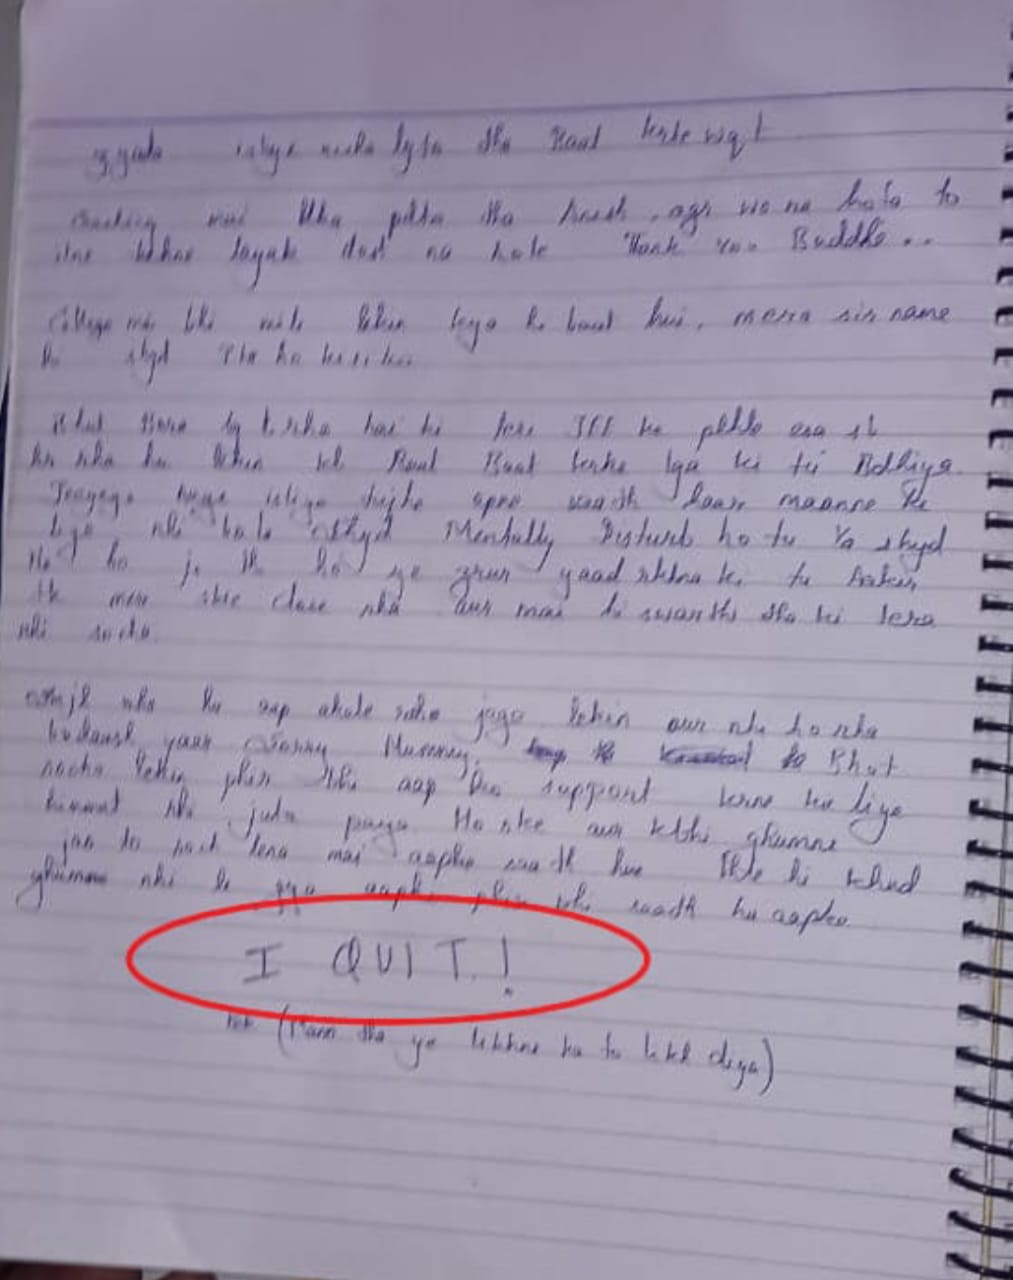 zyada isliye accha lgta tha Baat krte wqt
Coaching mai likha pdha tha hrash, agr wo na hota to
itne kehne layak dost na hote Thank You Buddhe..
College mai bhi mile lekin kya he baat hui, mera sir name
hi shyd
Bhut bura lg rha hai ki tere JEE ke pehle esa sb
kr rha hu lekin kl Raat Baat krke lga ki tu Bdhiya
Jeayega tujhe isliye tujhe apne saath haar maanne ke
liye nhi bola shyd Mentally Disturb ho tu Ya shyd
Na ho jo bhi ho ye zrur yaad rkhna ki tu
tk mere sbse close rha aur mai hi swarthi tha ki tera
nhi socha
smjh rha hu aap akele reh jaoge lekin aur nhi ho rha
bardaasht yaar Sorry Mummy, Bhut
socha lekin phir bhi aap ko support krne ke liye
himmat nhi juta paya Ho ske aur kbhi ghumne
jao to soch lena mai aapke saath hu Bhle hi khud
ghumane nhi le gya aapko phir bhi saath hu aapke
I QUIT!
(Mann tha ye likhne ka to likh diya)